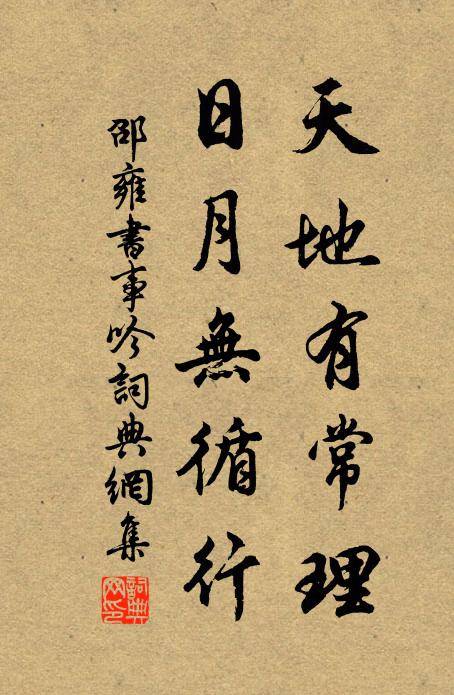 天地有常理
日月無循行
邵雍書事吟詞典網集
詞典网印